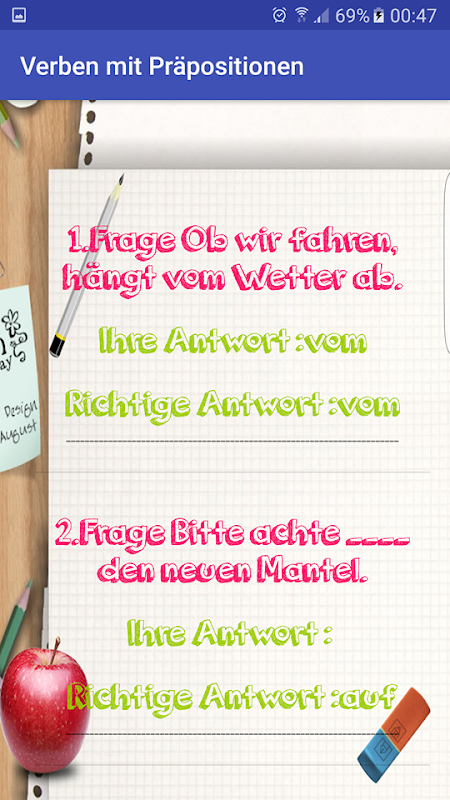 69% 00:47
Verben mit Präpositionen
1.Frage Ob wir fahren,
hängt vom Wetter ab.
Ihre Antwort :vom
ay
Design
August
Richtige Antwort :vom
2.Frage Bitte achte ____
den neuen Mantel.
Ihre Antwort :
Richtige Antwort :auf